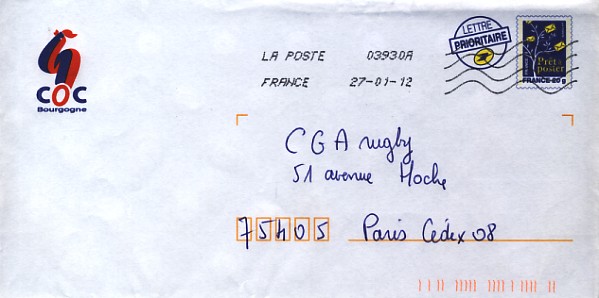 COC
Bourgogne
LA POSTE 03930A
FRANCE 27-01-12
LETTRE
PRIORITAIRE
Prêt-à
poster
FRANCE-20 g
CGA rugby
51 avenue Hoche
75405 Paris Cédex 08